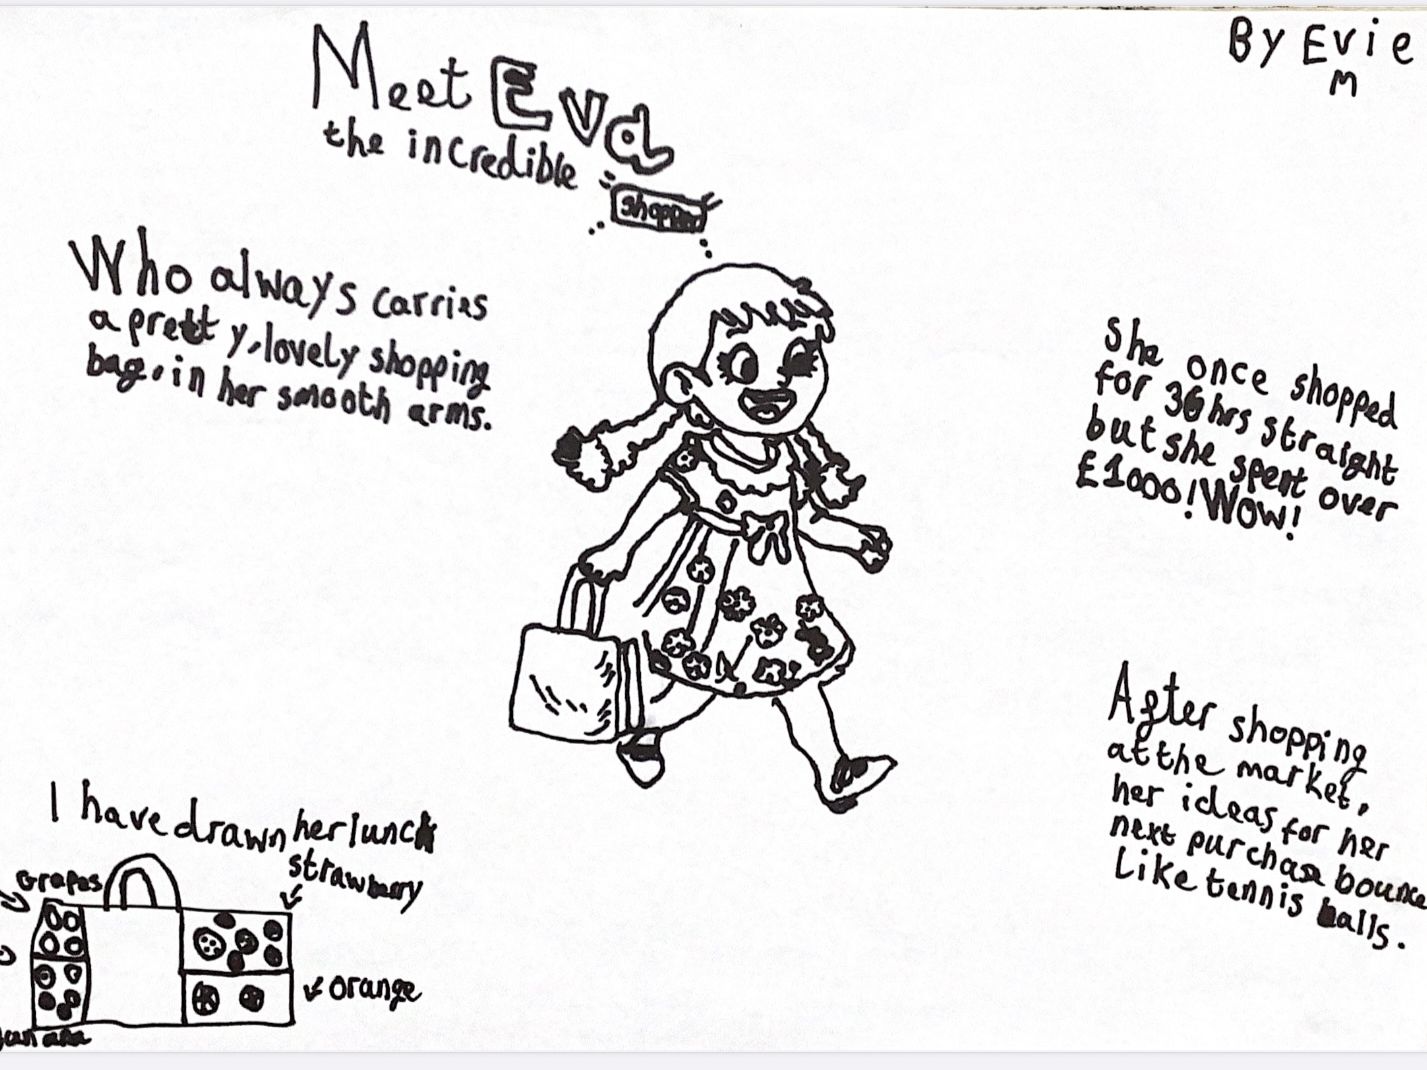 Meet Eva
the incredible
shopper
By Evie
M
Who always carries
a pretty, lovely shopping
bag, in her smooth arms.
She once shopped
for 36 hrs straight
but she spent over
£1000! Wow!
After shopping
at the market,
her ideas for her
next purchase bounce
Like tennis balls.
I have drawn her lunch
strawberry
Grapes
orange
banana